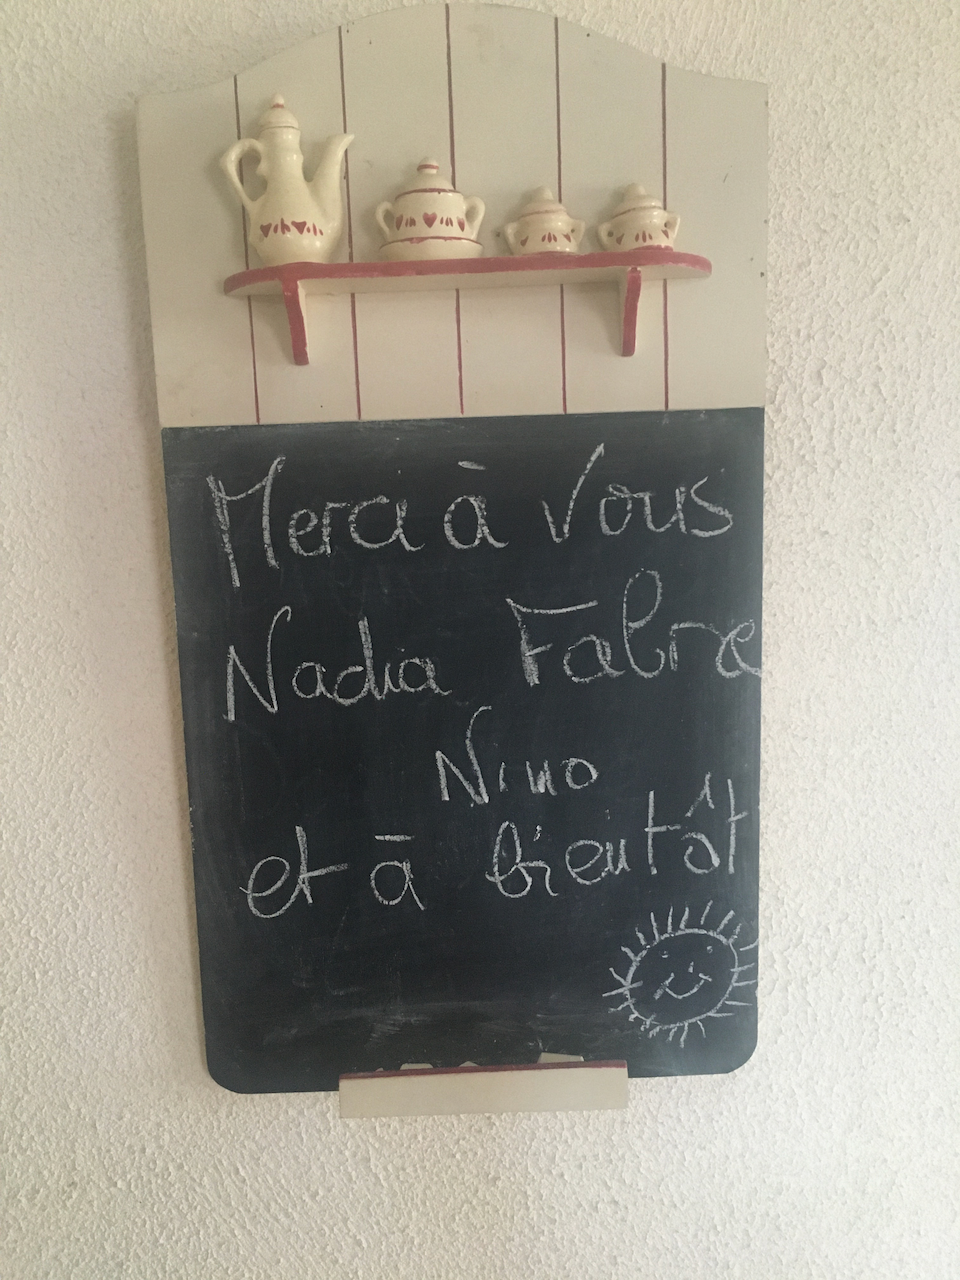 Merci à Vous
Nadia Fabre
Nino
et à bientôt